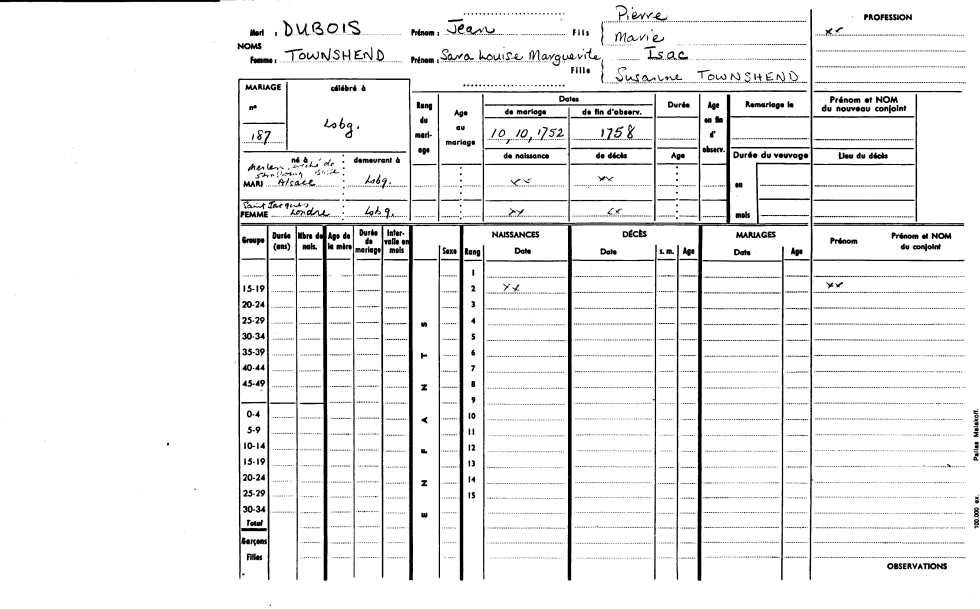 Pierre PROFESSION
Mari : DUBOIS Prénom : Jean Fils Marie xx
NOMS
Femme : TOWNSHEND Prénom : Sara Louise Marguerite Isac
Fille Susanne TOWNSHEND
MARIAGE célébré à
n° 187 Lobg.
Rang du mariage
Age au mariage
Dates
de mariage de fin d'observ.
10, 10, 1752 1758
de naissance de décès
Durée
Age
Age en fin d' observ.
Remariage le
Durée du veuvage
en
mois
Prénom et NOM du nouveau conjoint
Lieu du décès
né à demeurant à
MARI Alsace Lobg. xx xx
Saint Jacques,
FEMME Londre Lobg. xx xx
Groupe Durée (ans) Nbre de nais. Age de la mère Durée de mariage Inter-valle en mois
ENFANTS
Sexe Rang
NAISSANCES Date
DÉCÈS Date s. m. Age
MARIAGES Date Age
Prénom Prénom et NOM du conjoint
1
15-19 2 xx xx
20-24 3
25-29 4
30-34 5
35-39 6
40-44 7
45-49 8
9
0-4 10
5-9 11
10-14 12
15-19 13
20-24 14
25-29 15
30-34
Total
Garçons
Filles
OBSERVATIONS
100.000 ex. Pallas Malakoff.